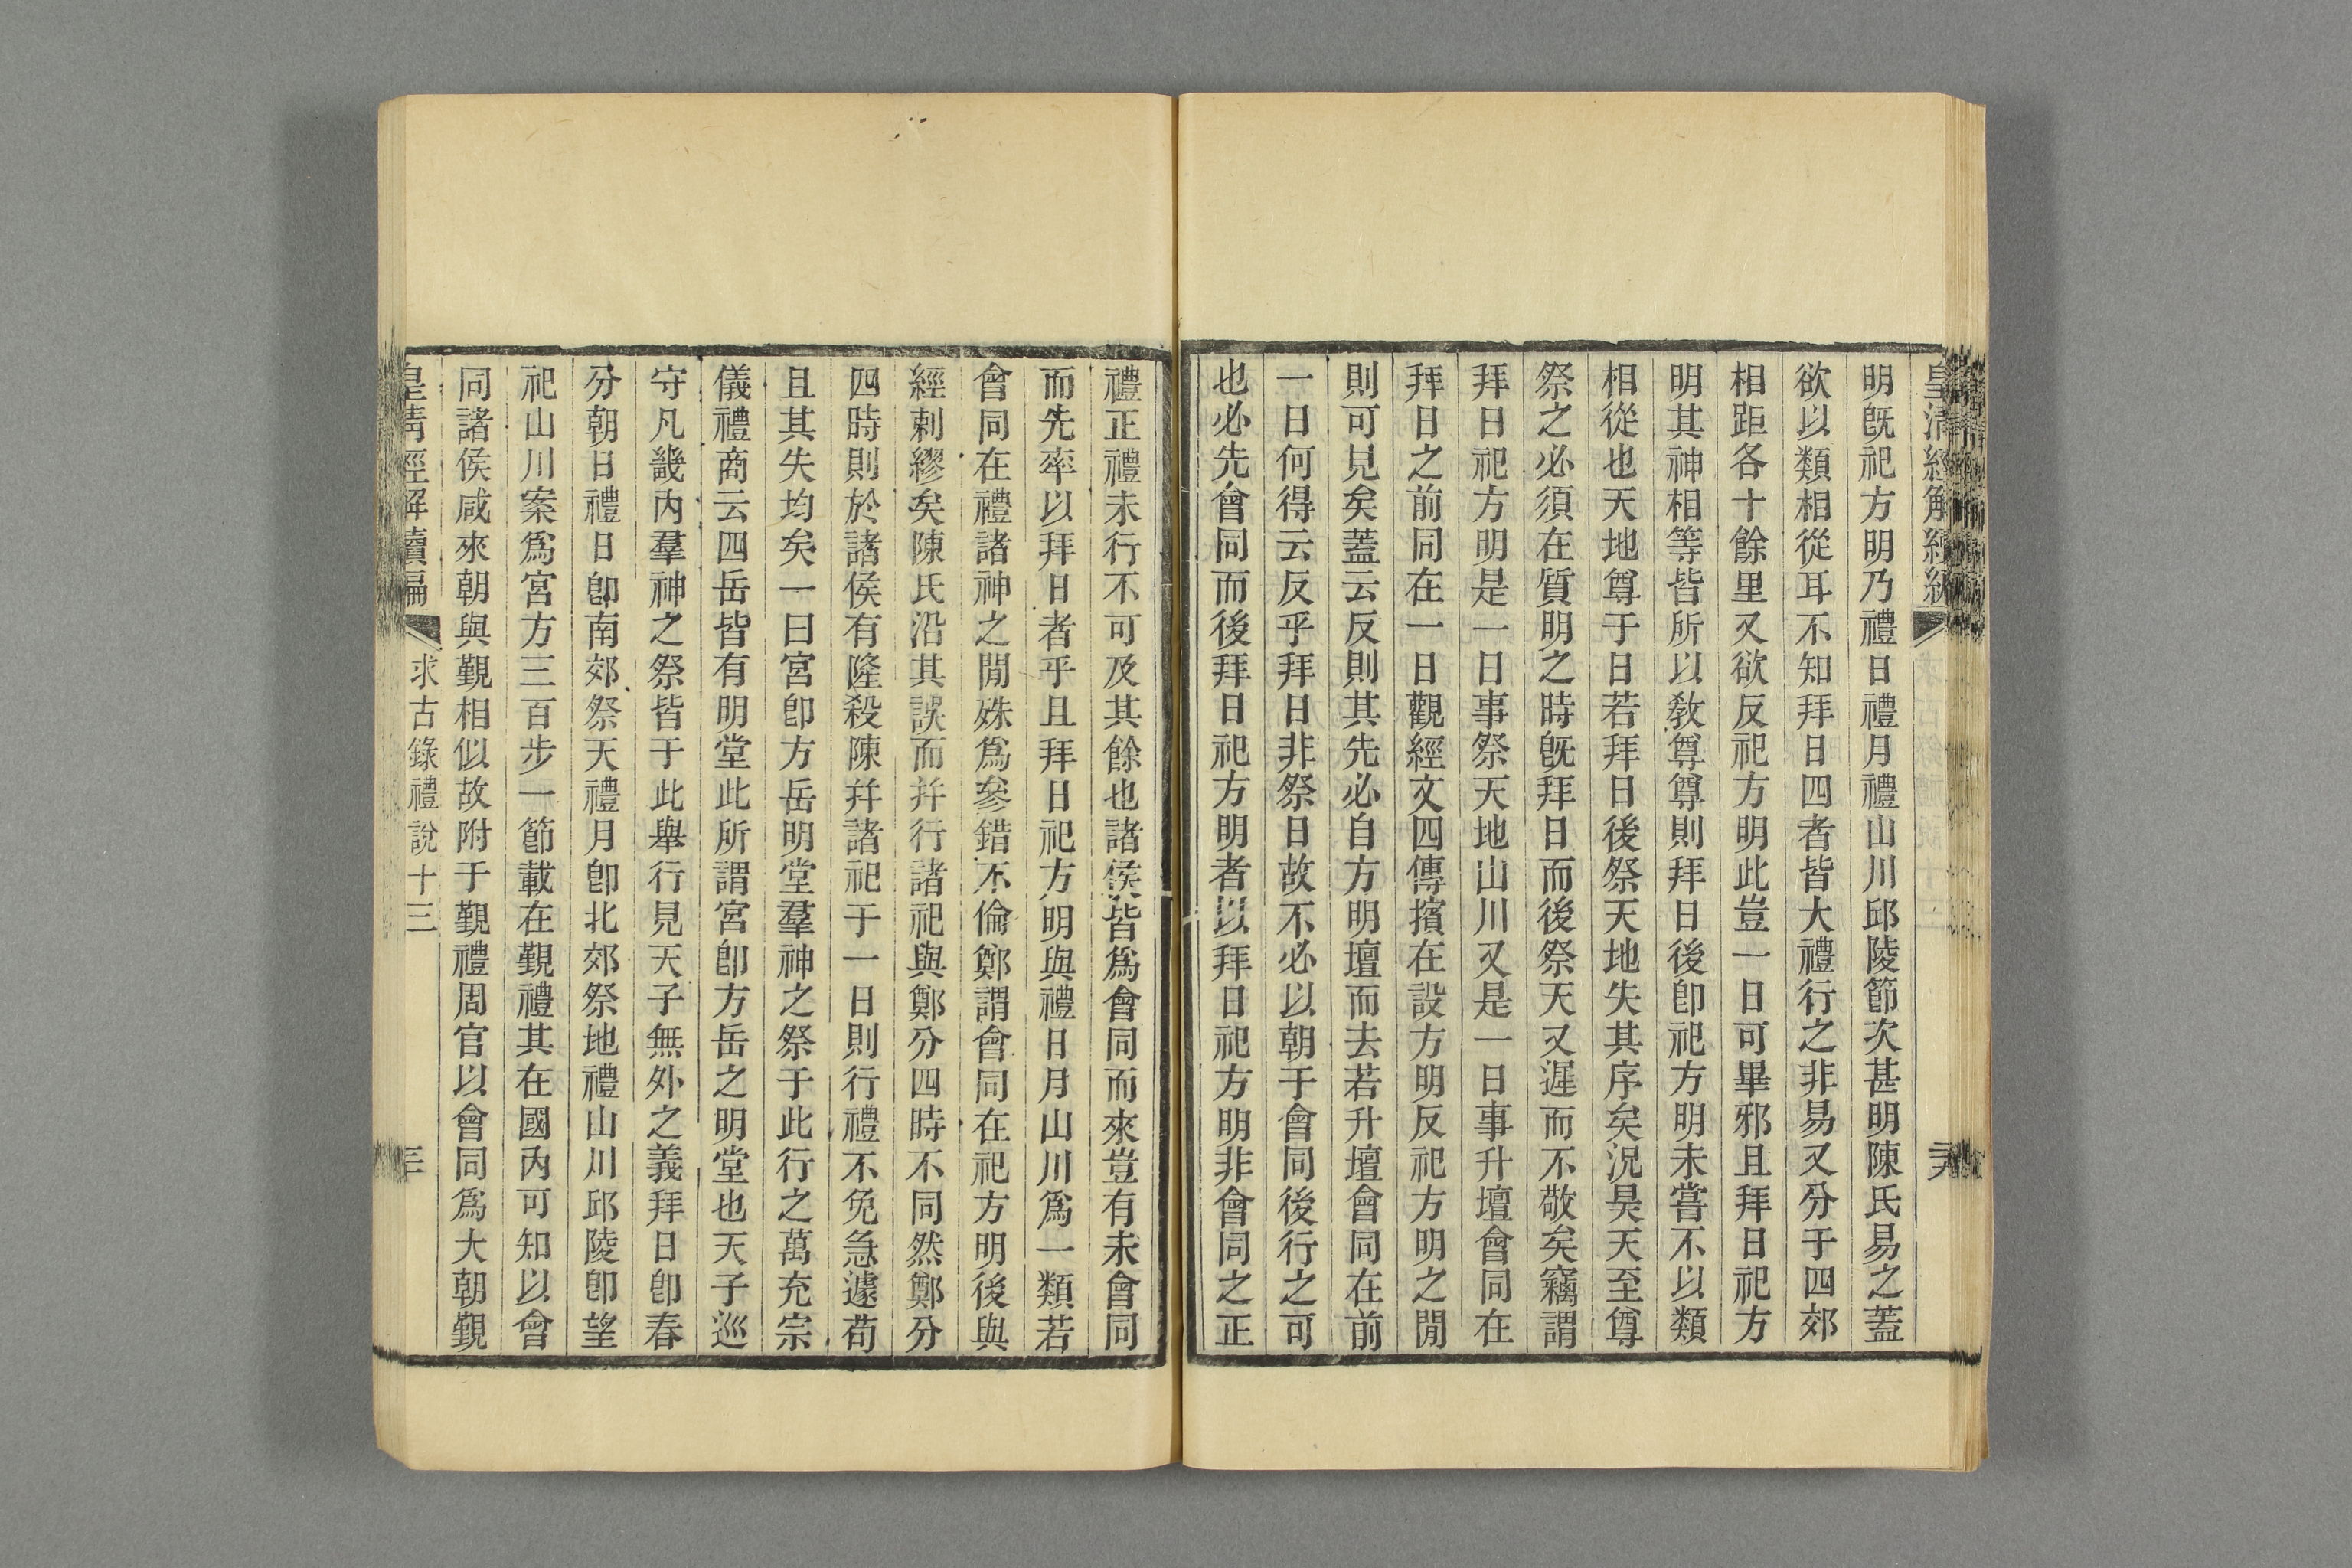 皇清經解續編
明旣祀方明乃禮日禮月禮山川邱陵節次甚明陳氏易之蓋
欲以類相從耳不知拜日四者皆大禮行之非易又分于四郊
相距各十餘里又欲反祀方明此豈一日可畢邪且拜日祀方
明其神相等皆所以敎尊尊則拜日後卽祀方明未嘗不以類
相從也天地尊于日若拜日後祭天地失其序矣況昊天至尊
祭之必須在質明之時旣拜日而後祭天又遲而不敬矣竊謂
拜日祀方明是一日事祭天地山川又是一日事升壇會同在
拜日之前同在一日觀經文四傳擯在設方明反祀方明之閒
則可見矣蓋云反則其先必自方明壇而去若升壇會同在前
一日何得云反乎拜日非祭日故不必以朝于會同後行之可
也必先會同而後拜日祀方明者以拜日祀方明非會同之正
禮正禮未行不可及其餘也諸侯皆爲會同而來豈有未會同
而先率以拜日者乎且拜日祀方明與禮日月山川爲一類若
會同在禮諸神之閒殊爲參錯不倫鄭謂會同在祀方明後與
經剌繆矣陳氏沿其誤而幷行諸祀與鄭分四時不同然鄭分
四時則於諸侯有隆殺陳幷諸祀于一日則行禮不免急遽苟
且其失均矣一曰宮卽方岳明堂羣神之祭于此行之萬充宗
儀禮商云四岳皆有明堂此所謂宮卽方岳之明堂也天子巡
守凡畿內羣神之祭皆于此舉行見天子無外之義拜日卽春
分朝日禮日卽南郊祭天禮月卽北郊祭地禮山川邱陵卽望
祀山川案爲宮方三百步一節載在覲禮其在國內可知以會
同諸侯咸來朝與覲相似故附于覲禮周官以會同爲大朝覲
皇清經解續編
求古錄禮說十三